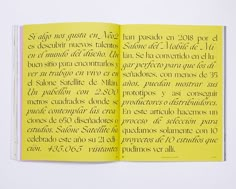 Si algo nos gusta en Neo2
es descubrir nuevos talentos
en el mundo del diseño. Un
buen sitio para encontrarlos y
ver su trabajo en vivo es en
el Salone Satellite de Milán.
Un pabellón con 2.800
metros cuadrados donde se
puede contemplar las crea-
ciones de 650 diseñadores o
estudios. Salone Satellite ha
celebrado este su 21 edi-
ción. 435.065 visitantes
han pasado en 2018 por el
Salone del Mobile de Mi-
lán. Se ha convertido en el lu-
gar perfecto para que los di-
señadores, con menos de 35
años, puedan mostrar sus
prototipos y así conseguir
productores o distribuidores.
En este artículo hacemos un
proceso de selección para
quedarnos solamente con 10
proyectos de 10 estudios que
pudimos ver allí.